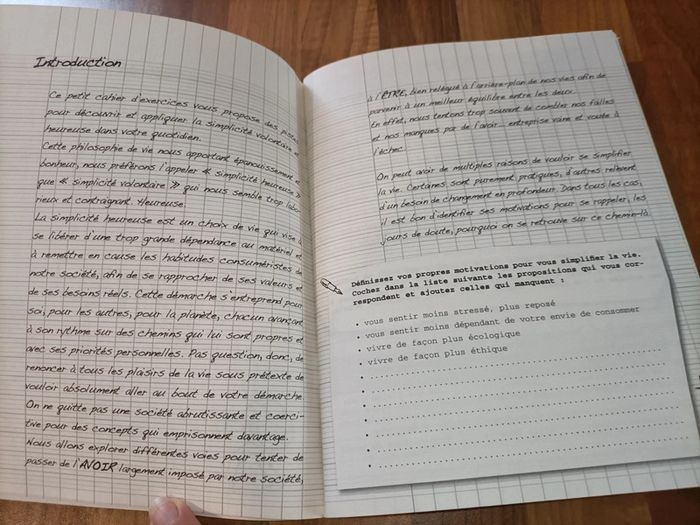 Introduction
Ce petit cahier d'exercices vous propose des pistes
pour découvrir et appliquer la simplicité volontaire et
heureuse dans votre quotidien.
Cette philosophie de vie nous apportant épanouissement et
bonheur, nous préférons l'appeler « simplicité heureuse »
que « simplicité volontaire » qui nous semble trop labo-
rieux et contraignant. Heureuse.
La simplicité heureuse est un choix de vie qui vise à
se libérer d'une trop grande dépendance au matériel et
à remettre en cause les habitudes consuméristes de
notre société, afin de se rapprocher de ses valeurs et
de ses besoins réels. Cette démarche s'entreprend pour
soi, pour les autres, pour la planète, chacun avançant
à son rythme sur des chemins qui lui sont propres et
avec ses priorités personnelles. Pas question, donc, de
renoncer à tous les plaisirs de la vie sous prétexte de
vouloir absolument aller au bout de votre démarche.
On ne quitte pas une société abrutissante et coerci-
tive pour des concepts qui emprisonnent davantage.
Nous allons explorer différentes voies pour tenter de
passer de l'AVOIR largement imposé par notre société,
à l'ÊTRE, bien relégué à l'arrière-plan de nos vies afin de
parvenir à un meilleur équilibre entre les deux.
En effet, nous tentons trop souvent de combler nos failles
et nos manques par de l'avoir... entreprise vaine et vouée à
l'échec.
On peut avoir de multiples raisons de vouloir se simplifier
la vie. Certaines sont purement pratiques, d'autres relèvent
d'un besoin de changement en profondeur. Dans tous les cas,
il est bon d'identifier ses motivations pour se rappeler, les
jours de doute, pourquoi on se retrouve sur ce chemin-là.
Définissez vos propres motivations pour vous simplifier la vie.
Cochez dans la liste suivante les propositions qui vous cor-
respondent et ajoutez celles qui manquent :
• vous sentir moins stressé, plus reposé
• vous sentir moins dépendant de votre envie de consommer
• vivre de façon plus écologique
• vivre de façon plus éthique